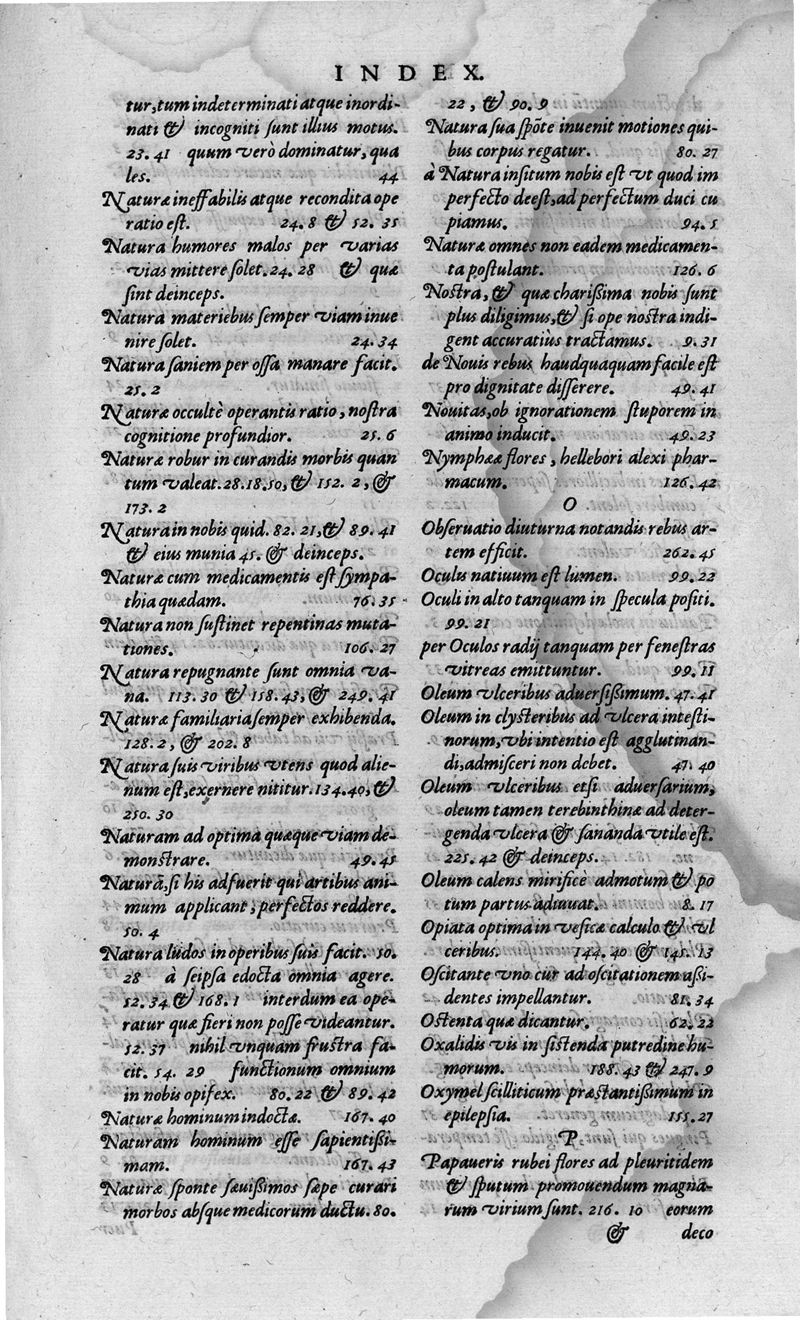 INDEX.
tur, tum indeterminati atque inordi-
nati & incogniti sunt illius motus.
23. 41 quum verò dominatur, qua
les. 44
Naturæ ineffabilis atque recondita ope
ratio est. 24. 8 & 52. 35
Natura humores malos per varias
vias mittere solet. 24. 28 & quæ
sint deinceps.
Natura materiebus semper viam inue
nire solet. 24. 34
Natura saniem per ossa manare facit.
25. 2
Naturæ occultè operantis ratio, nostra
cognitione profundior. 25. 6
Naturæ robur in curandis morbis quan
tum valeat. 28. 18. 50, & 152. 2, &
173. 2
Natura in nobis quid. 82. 21, & 89. 41
& eius munia 45. & deinceps.
Naturæ cum medicamentis est sympa-
thia quædam. 76. 35
Natura non sustinet repentinas muta-
tiones. 106. 27
Natura repugnante sunt omnia va-
na. 113. 30 & 158. 43, & 249. 41
Naturæ familiaria semper exhibenda.
128. 2, & 202. 8
Natura suis viribus vtens quod alie-
num est, exernere nititur. 134. 40, &
250. 30
Naturam ad optima quæque viam de-
monstrare. 49. 45
Naturā, si his adfuerit qui artibus ani-
mum applicant, perfectos reddere.
50. 4
Natura ludos in operibus suis facit. 50.
28 à seipsa edocta omnia agere.
52. 34 & 168. 1 interdum ea ope-
ratur quæ fieri non posse videantur.
52. 37 nihil vnquam frustra fa-
cit. 54. 29 functionum omnium
in nobis opifex. 80. 22 & 89. 42
Naturæ hominum indoctæ. 167. 40
Naturam hominum esse sapientißi-
mam. 167. 43
Naturæ sponte sæuißimos sæpe curari
morbos absque medicorum ductu. 80.
22, & 90. 9
Natura sua spōte inuenit motiones qui-
bus corpus regatur. 80. 27
à Natura insitum nobis est vt quod im
perfecto deest, ad perfectum duci cu
piamus. 94. 5
Naturæ omnes non eadem medicamen-
ta postulant. 126. 6
Nostra, & quæ charißima nobis sunt
plus diligimus, & si ope nostra indi-
gent accuratius tractamus. 9. 31
de Nouis rebus haudquaquam facile est
pro dignitate disserere. 49. 41
Nouitas, ob ignorationem stuporem in
animo inducit. 49. 23
Nymphææ flores, hellebori alexi phar-
macum. 126. 42
O
Obseruatio diuturna notandis rebus ar-
tem efficit. 262. 45
Oculus natiuum est lumen. 99. 22
Oculi in alto tanquam in specula positi.
99. 21
per Oculos radij tanquam per fenestras
vitreas emittuntur. 99. 11
Oleum vlceribus aduersißimum. 47. 41
Oleum in clysteribus ad vlcera intesti-
norum, vbi intentio est agglutinan-
di, admisceri non debet. 47. 40
Oleum vlceribus etsi aduersarium,
oleum tamen terebinthinæ ad deter-
genda vlcera & sananda vtile est.
225. 42 & deinceps.
Oleum calens mirificè admotum & po
tum partus adiuuat. 8. 17
Opiata optima in vesicæ calculo & vl
ceribus. 144. 40 & 145. 13
Oscitante vno cur ad oscitationem aßi-
dentes impellantur. 81. 34
Ostenta quæ dicantur. 62. 22
Oxalidis vis in sistenda putredine hu-
morum. 188. 43 & 247. 9
Oxymel scilliticum præstantißimum in
epilepsia. 155. 27
P
Papaueris rubei flores ad pleuritidem
& sputum promouendum magna-
rum virium sunt. 216. 10 eorum
& deco